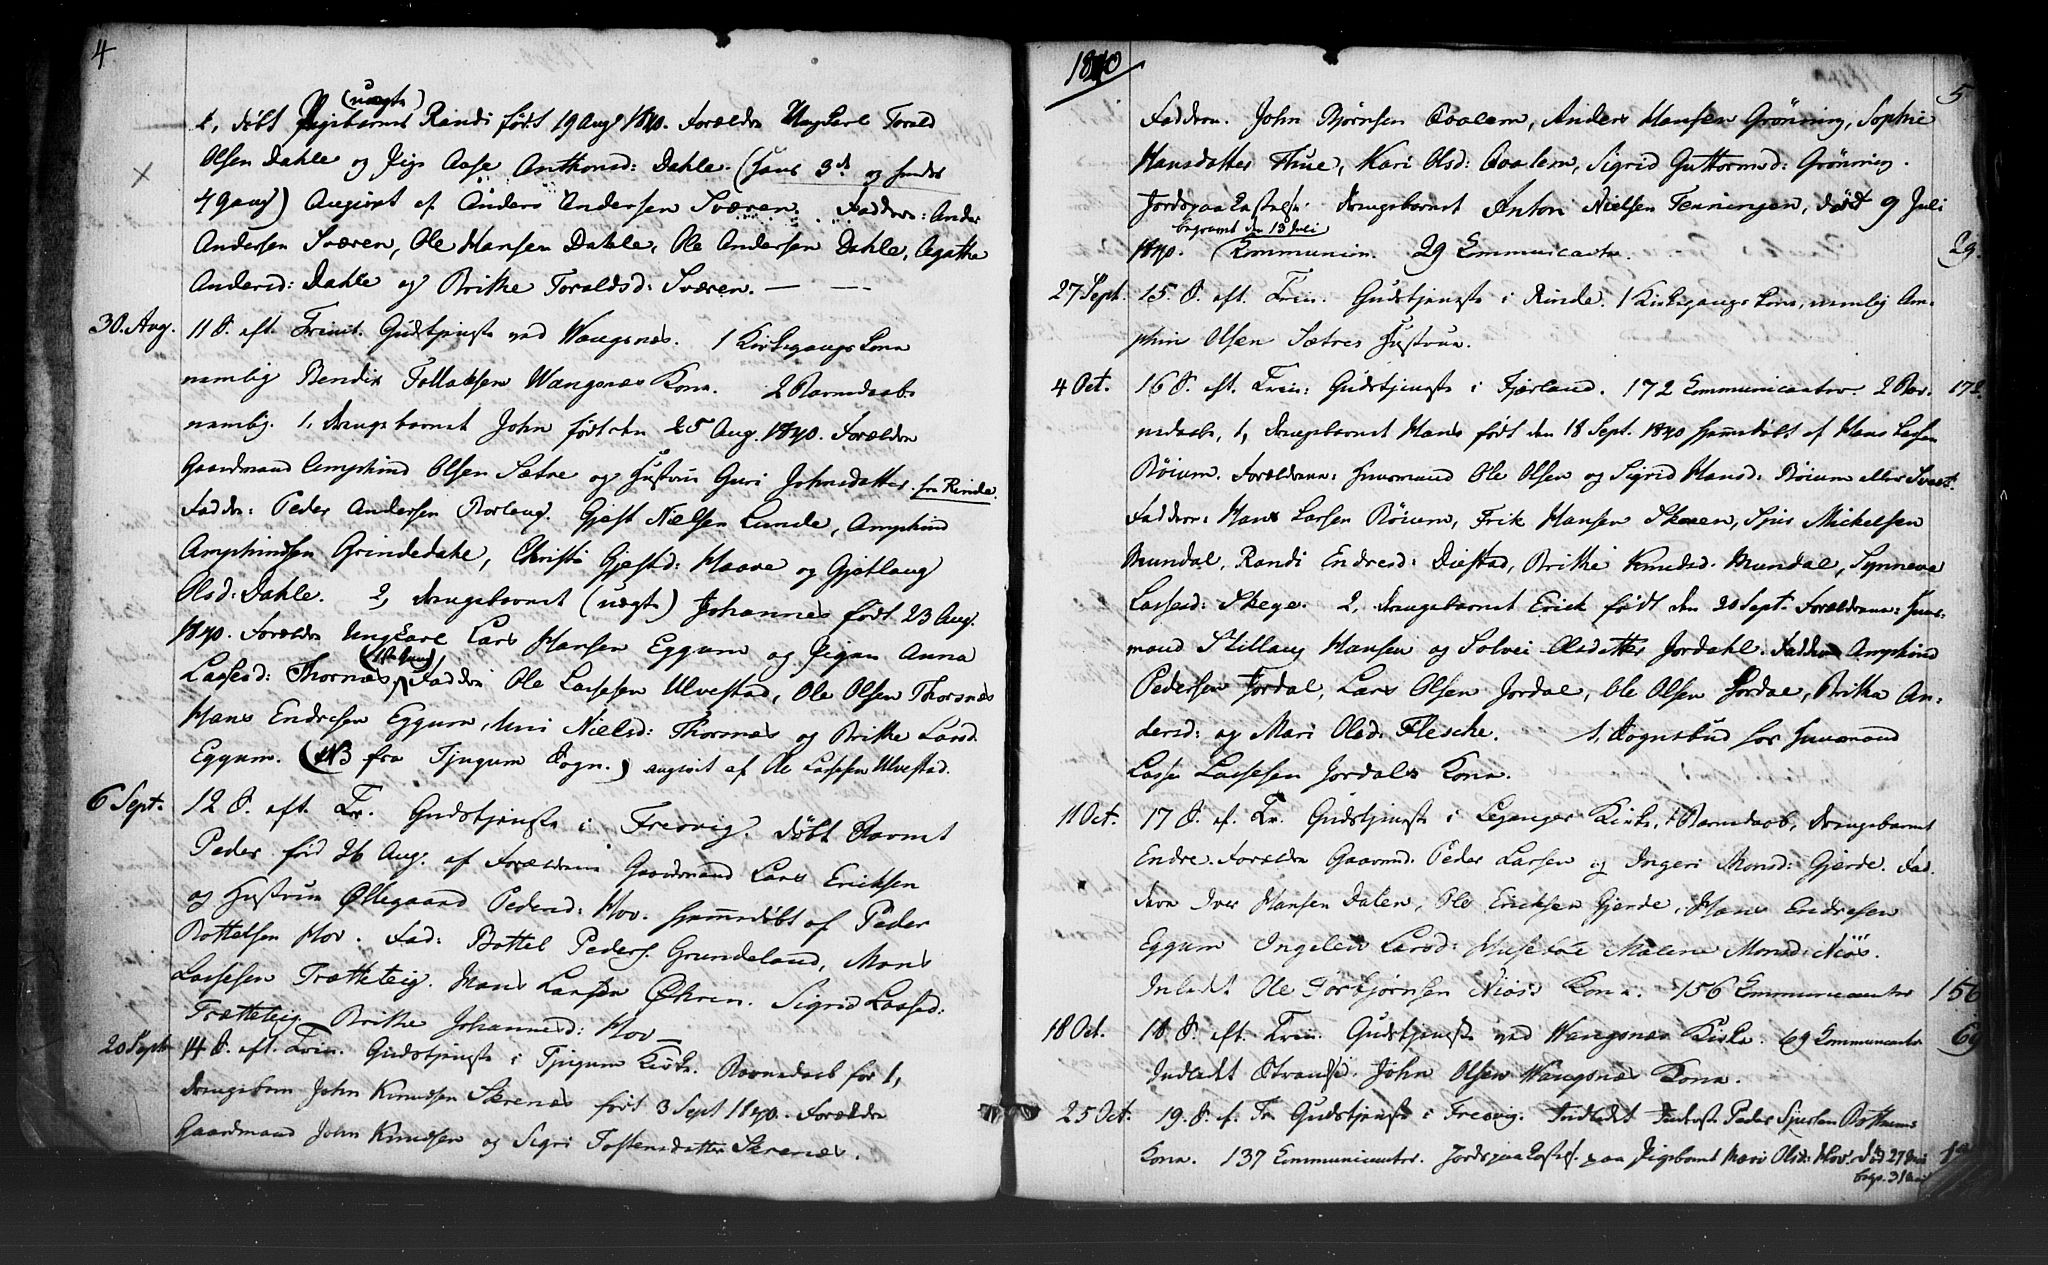 4
(uægte)
2, døbt Pigebarnet Randi født 19 Aug 1840. Forældre Ungkarl Torald
Olsen Dahle og Pige Aase Anthonsd: Dahle. (Hans 3die og hendes
4 Gang) Angivet af Anders Andersen Sværen. Faddere: Anders
Andersen Sværen, Ole Hansen Dahle, Ole Andersen Dahle, Agathe
Andersd: Dahle og Brithe Toraldsd: Sværen. — —
30. Aug. 11 S. eft. Trinit. Gudstjeneste ved Wangsnæs. 1 Kirkegangs Kona
nemlig Bendix Tollaksen Wangsnæs Kona. 2 Barnedaab
nemlig. 1, Drengebarnet John født den 25 Aug. 1840. Forældre
Gaardmand Amphind Olsen Sætre og Hustrue Guri Johnsdatter fra Rinde.
Faddere: Peder Andersen Borlaug. Gjest Nielsen Lunde, Amphind
Amphindsen Grindedahl, Christi Gjestsd: Haave og Gjøtlaug
Olsd: Dahle. 2, Drengebarnet (uægte) Johannes født 23 Aug.
1840. Forældre Ungkarl Lars Hansen Eggum og Pigen Anna
Lassesd: Thornæs, Faddere Ole Lassesen Ulvestad, Ole Olsen Thorsnæs
Hans Endresen Eggum, Uni Nielsd: Thorsnæs og Brithe Larsd.
Eggum. (NB fra Tjugum Sogn.) angivet af Ole Lassesen Ulvestad.
6 Sept. 12 S. eft. Tr. Gudstjeneste i Fresvig. Døbt Barnet
Peder fød 26 Aug. af Forældrene Gaardmand Lars Ericksen
og Hustrue Øllegaard Pedersd: Hov. Hjemmedøbt af Peder
Bottelsen Hov. Fad: Bottel Peders. Grundeland, Mons
Lassesen Trætteteig. Hans Larsen Øhren. Sigrid Lassesd:
Trætteteig. Brithe Johannesd: Hov
20 Sept 14 S. eft. Trin. Gudstjeneste i Tjugum Kirke. Barnedaab for 1,
Drengebarn John Knudsen Skrenæs født 3 Sept 1840. Forældre
Gaardmand John Knudsen og Sigri Tostensdatter Skrenæs.
1840
5
Faddere. John Bjørnsen Qvalem, Anders Hansen Grønning, Sophie
Hansdatter Thue, Kari Olsd: Qvalem, Sigrid Guttormsd: Grønning.
Jordspaakastelse: Drengebarnet Anton Nielsen Fenningen, død 9 Juli
begravet den 13 Juli
1840. Kommunion. 29 Communicanter. 29.
27 Sept. 15. S. eft. Trin. Gudstjeneste i Rinde. 1 Kirkegangs Kona, nemlig Am-
phin Olsen Sætres Hustrue.
4 Oct. 16 S. eft. Trin: Gudstjeneste i Fjærland. 172 Communicanter. 2 Bar- 172.
nedaab, 1, Drengebarnet Hans født den 18 Sept. 1840 hjemmedøbt af Hans Larsen
Bøium. Forældrene: Huusmand Ole Olsen og Sigrid Hansd: Bøium eller
Faddere: Hans Larsen Bøium, Frik Hansen Skeen, Spir Michelsen
Mundal, Randi Endresd: Distad, Brithe Knudsd. Mundal, Synneve
Lassesd: Skege. 2, Drengebarnet Erick født den 20 Sept. Forældrene: Huus-
mand Stillaug Hansen og Solvei Olsdatter Jordahl. Faddere Amphind
Pedersen Jordal, Lars Olsen Jordal, Ole Olsen Jordal, Britha An-
dersd: og Mari Olsd: Flesche. 1, Sognebud for Huusmand
Lasse Lassesen Jordals Kona.
11 Oct. 17 S. ef. Tr. Gudstjeneste i Leganger Kirke, 1 Barnedaab, Drengebarnet
Endre. Forældre Gaarmd: Peder Larsen og Ingeri Monsd: Gjerde. Fad-
dere Iver Hansen Dalen, Ole Ericksen Gjerde, Hans Endresen
Eggum Ingeleiv Larsd: Husebøe Malene Monsd: Niøs.
Inledt Ole Torbjørnsen Niøss Kona. 156 Communicanter 156
18 Oct. 18 S. eft. Trin. Gudstjeneste ved Wangsnæs Kirke. 69 Communicanter 69
Indledt John Olsen Wangsnæs Kona.
25 Oct. 19. S. ef. Tr Gudstjeneste i Fresvig. Indledt Peder Sjursen
Kona. 137 Communicanter. Jordspaakastels. paa Pigebarnet Mari Olsd: Hov. død 27
begr. 31